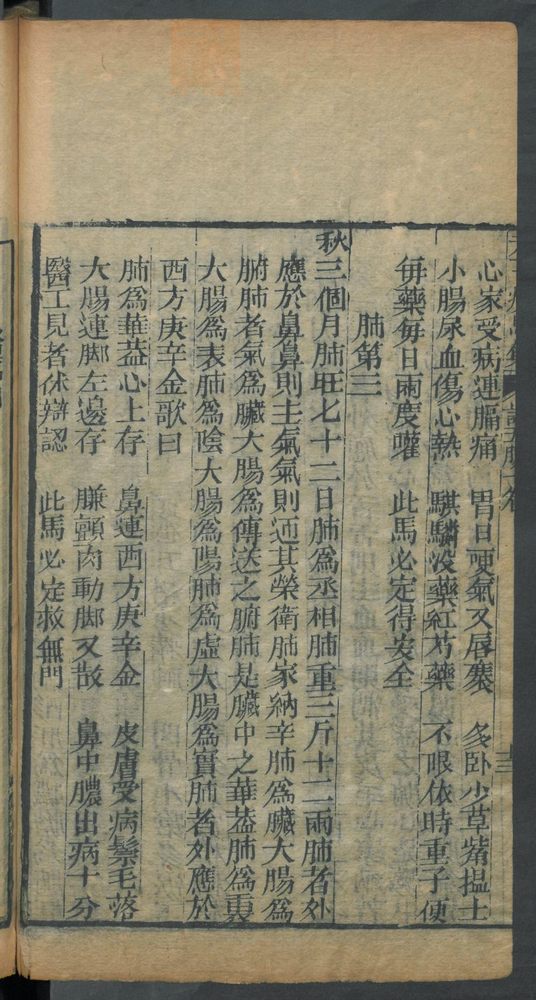 心家受病連膈痛 胃日哽氣又唇褰 多卧少草觜搵土
小腸尿血傷心熱 騏驎没藥紅芍藥 不喂依時重子便
每藥每日兩度嚾 此馬必定得安全
肺第三
秋三個月肺旺七十二日肺爲丞相肺重三斤十二兩肺者外
應於鼻鼻則主氣氣則通其榮衛肺家納辛肺爲臟大腸爲
腑肺者氣爲臟大腸爲傳送之腑肺是臟中之華葢肺爲裏
大腸爲表肺爲陰大腸爲陽肺爲虛大腸爲實肺者外應於
西方庚辛金歌曰
肺爲華葢心上存 鼻連西方庚辛金 皮膚受病鬃毛落
大腸連脚左邊存 膁顫肉動脚又散 鼻中膿出病十分
醫工見者休辯認 此馬必定救無門